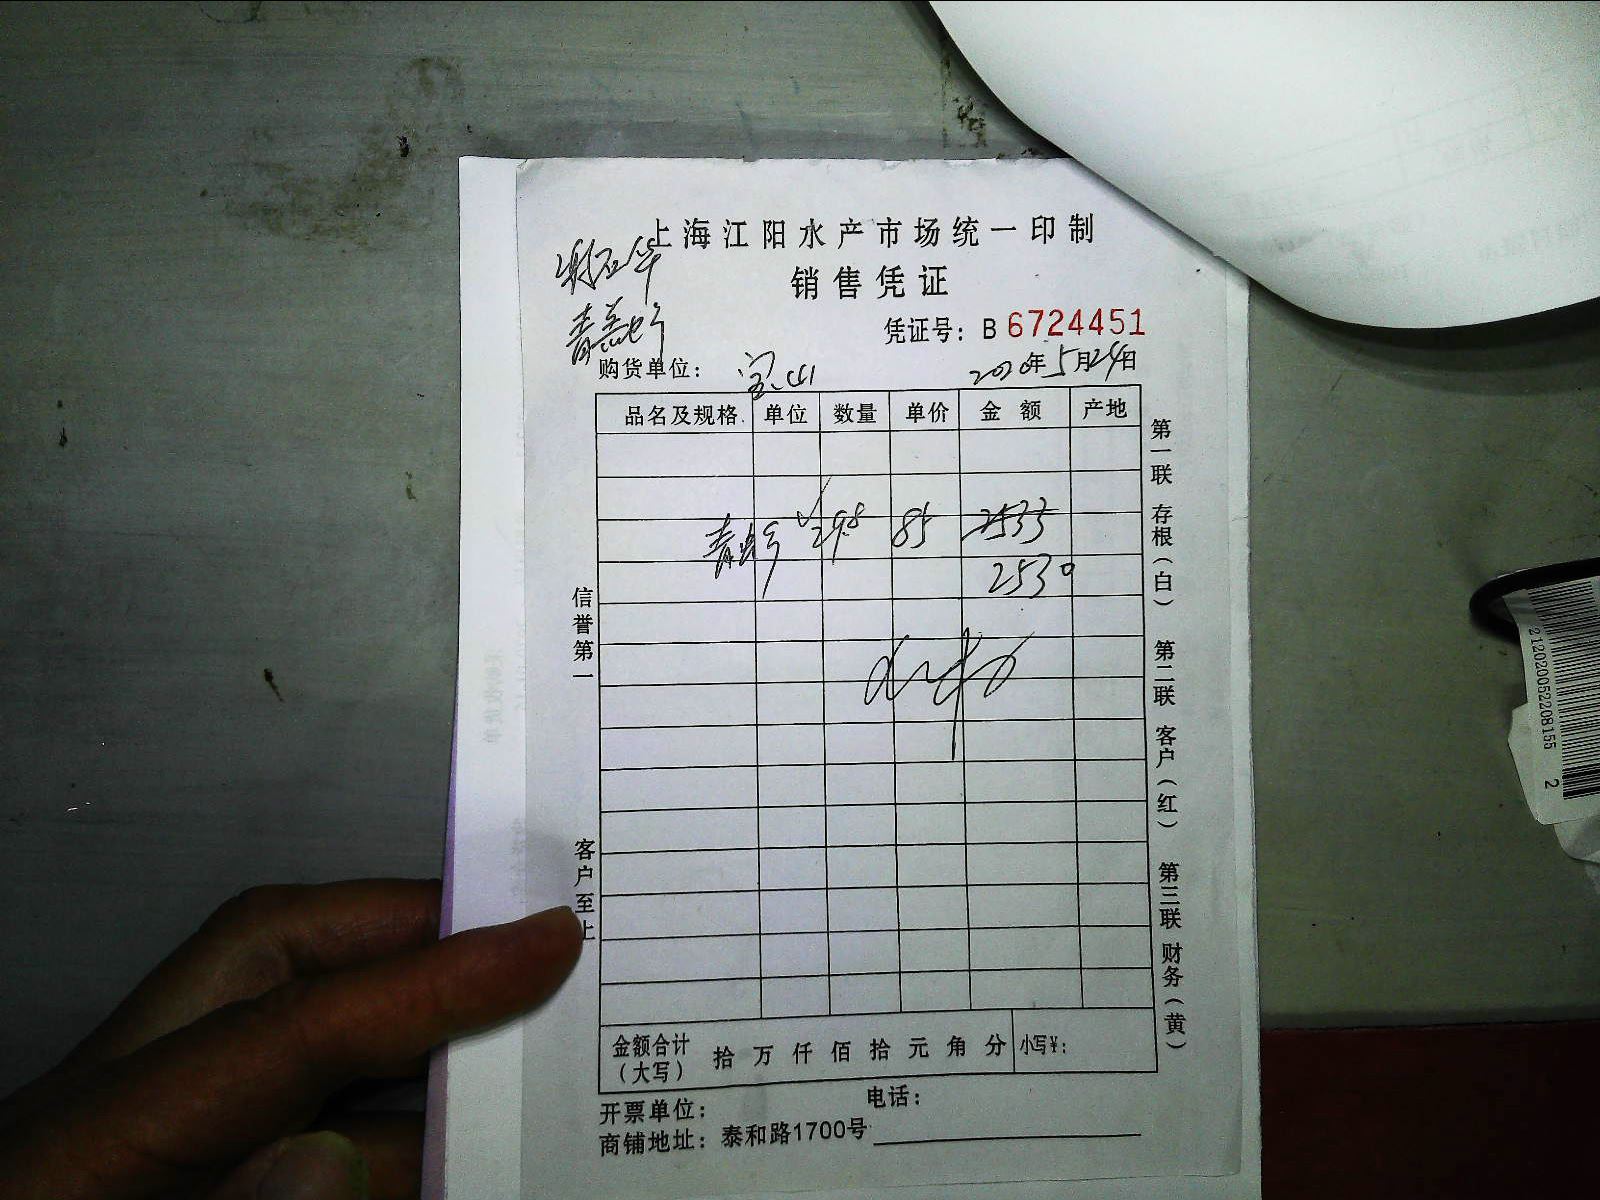 上海江阳水产市场统一印制
销售凭证
凭证号：B 6724451
购货单位：宝山 2020年5月24日
品名及规格 单位 数量 单价 金额 产地
29.8 85 2533
2530
信誉第一
客户至上
第一联 存根（白） 第二联 客户（红） 第三联 财务（黄）
金额合计（大写） 拾万仟佰拾元角分 小写¥：
开票单位： 电话：
商铺地址：泰和路1700号
212020052208155 2